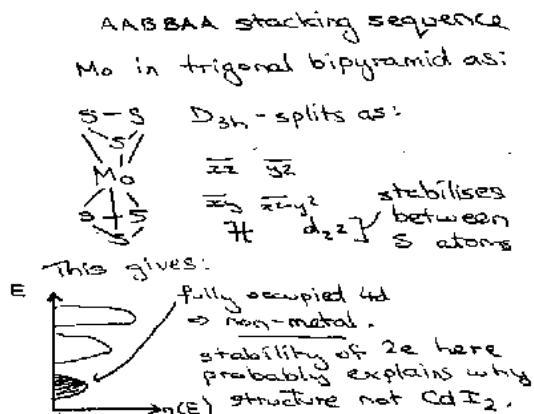 AABBAA stacking sequence
Mo in trigonal bipyramid as:
S - S
S
Mo
S S
S
D3h - splits as:
xz yz
xy x²-y²
dz²
stabilises
between
S atoms
This gives:
E
n(E)
fully occupied 4d
⇒ non-metal.
stability of 2e here
probably explains why
structure not CdI2.